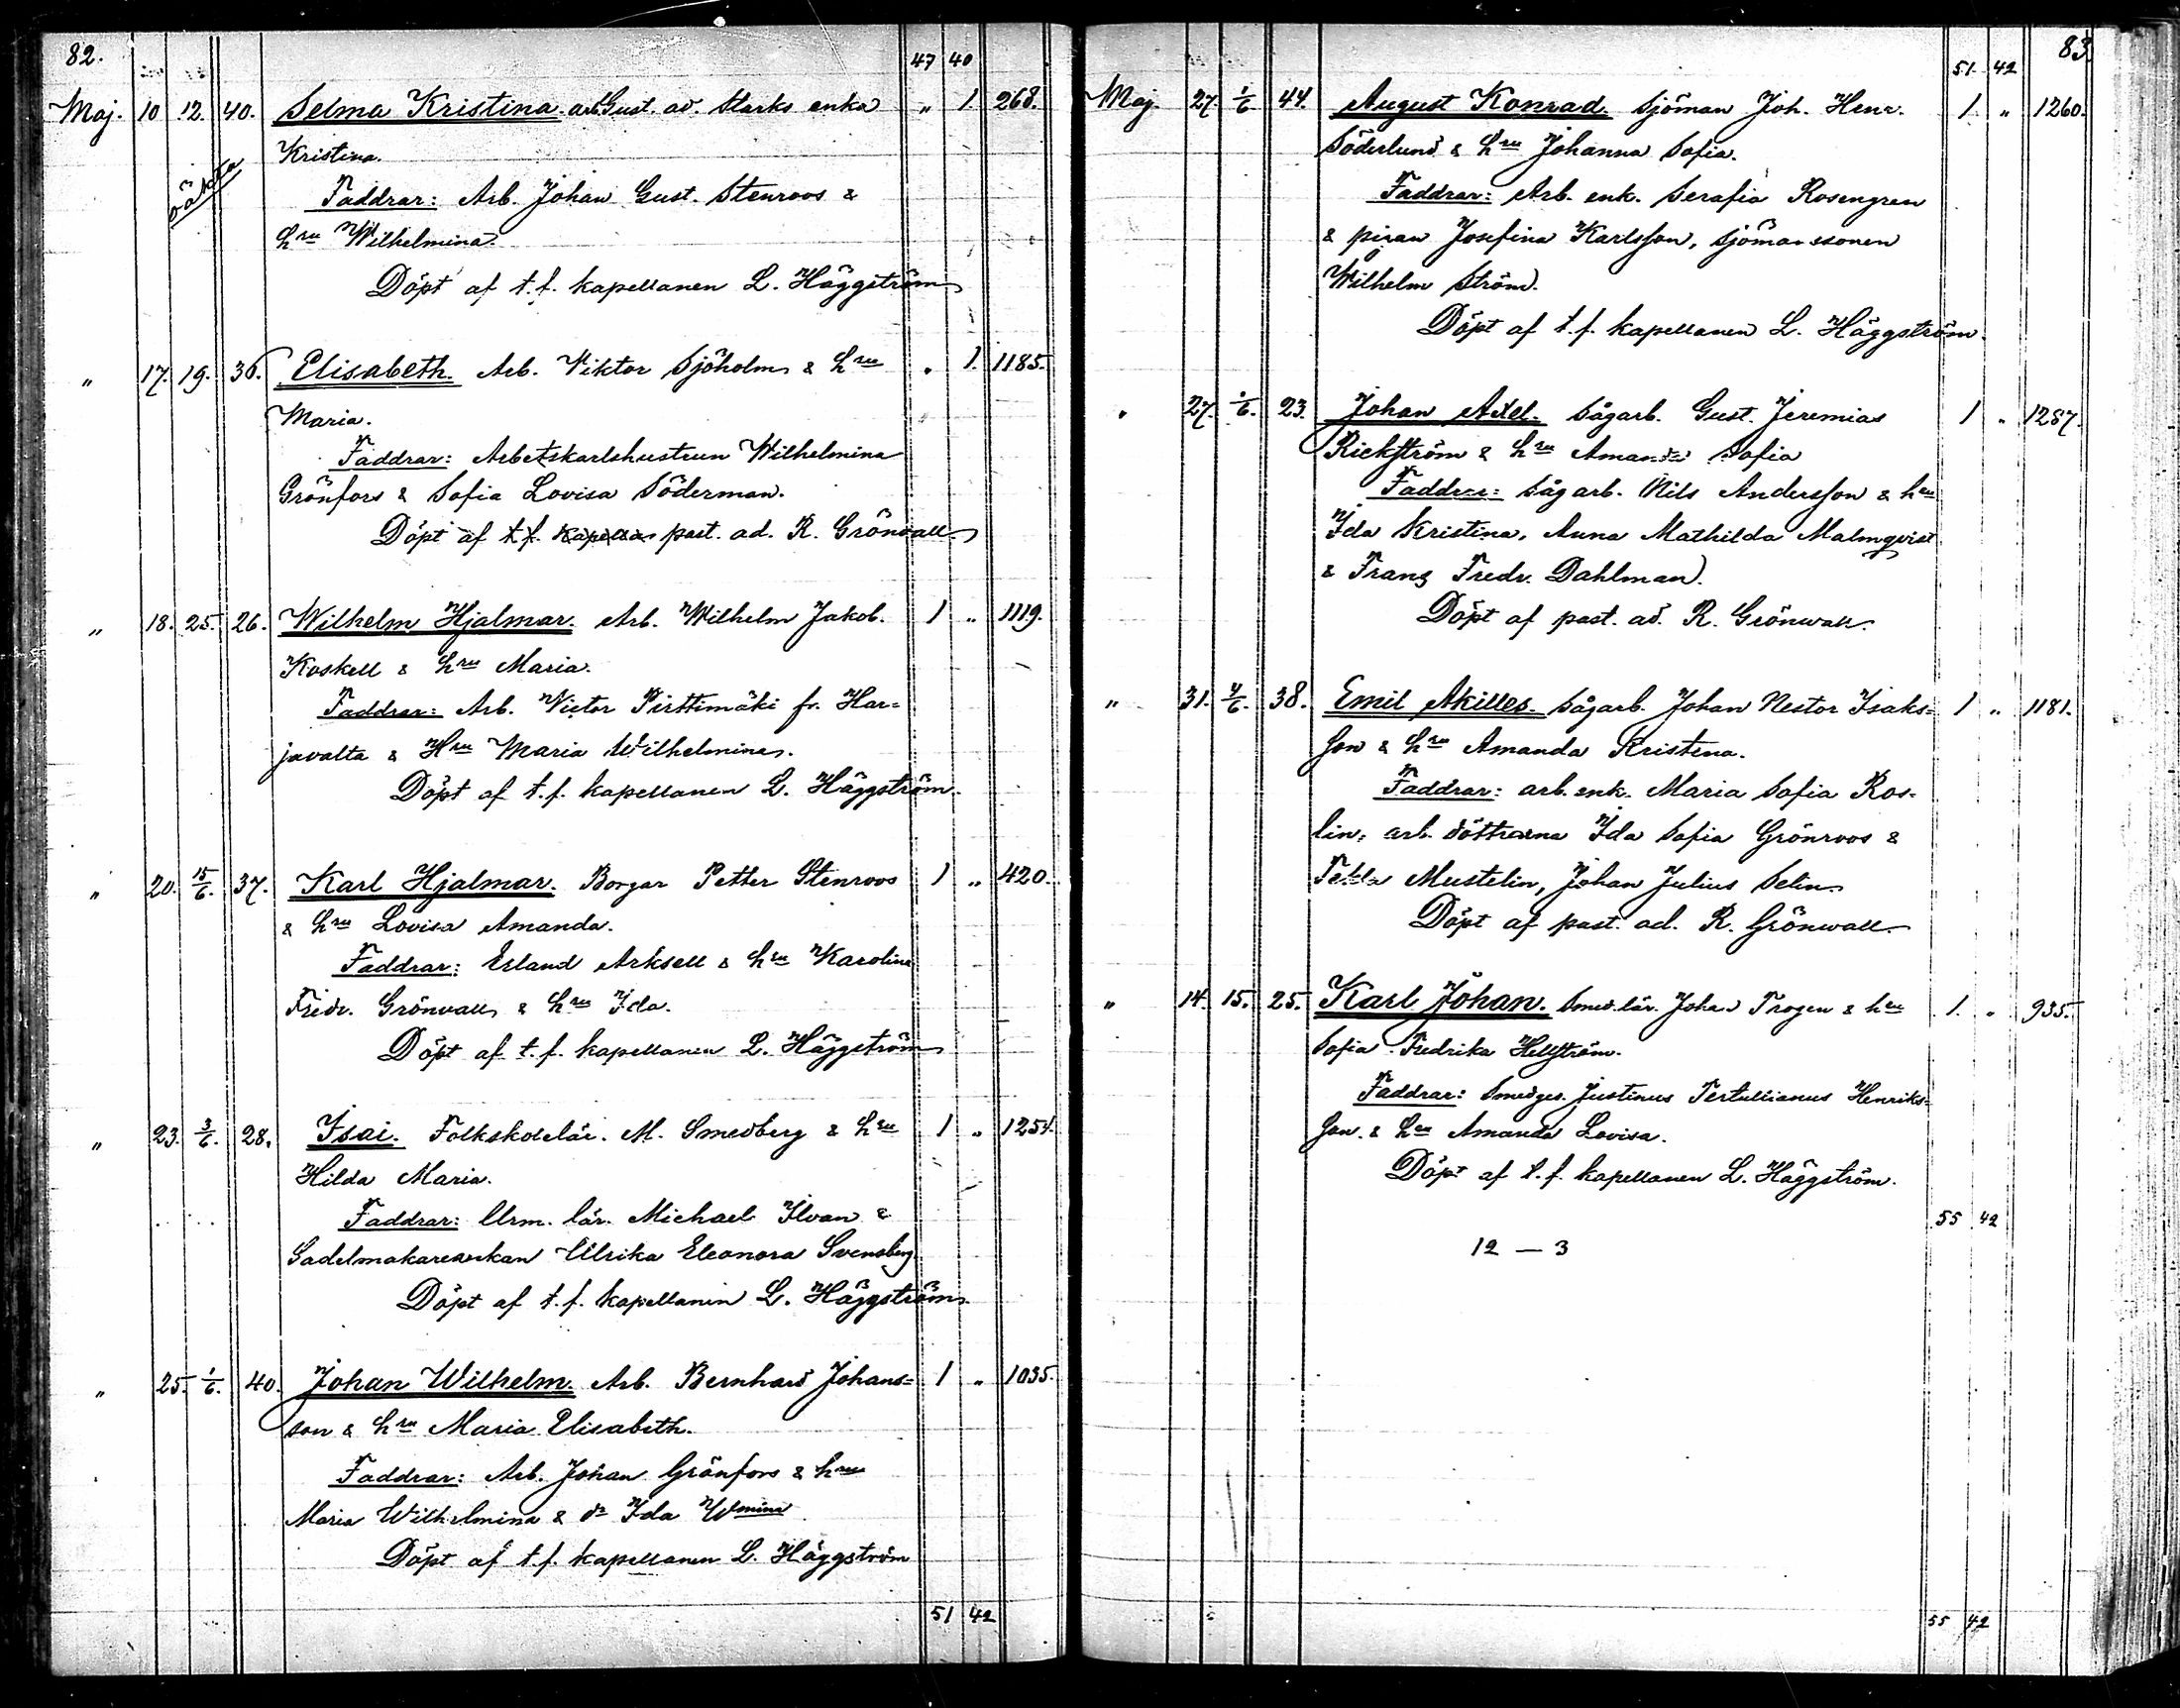 82.
47 40
Maj. 10 12. 40. Selma Kristina. arb. Gust. ad. Starks enka „ 1. 268.
Kristina.
oäkta
Faddrar: Arb. Johan Gust. Stenroos &
hru Wilhelmina.
Döpt af t. f. kapellanen L. Häggström
„ 17. 19. 36. Elisabeth. Arb. Viktor Sjöholm & hru „ 1. 1185.
Maria.
Faddrar: Arbetskarlshustrun Wilhelmina
Grönfors & Sofia Lovisa Söderman.
Döpt af t. f. kapellan past. ad. R. Grönwall
„ 18. 25. 26. Wilhelm Hjalmar. Arb. Wilhelm Jakob. 1 „ 1119.
Koskell & hru Maria.
Faddrar: Arb. Victor Pirttimäki fr. Har=
javalta & Hru Maria Wilhelmina.
Döpt af t. f. kapellanen L. Häggström.
„ 20. 15/6. 37. Karl Hjalmar. Borgar Petter Stenroos 1 „ 420.
& hru Lovisa Amanda.
Faddrar: Erland Arksell & hru Karolina
Fredr. Grönvall & hru Ida.
Döpt af t. f. kapellanen L. Häggström
„ 23. 3/6. 28. Isai. Folkskolelär. M. Smedberg & hru 1 „ 1254.
Hilda Maria.
Faddrar: Urm. lär. Michael Ilvan &
Sadelmakareenkan Ulrika Eleonora Svensberg.
Döpt af t. f. kapellanen L. Häggström.
„ 25. 1/6. 40. Johan Wilhelm. Arb. Bernhard Johans= 1 „ 1035.
son & hru Maria Elisabeth.
Faddrar: Arb. Johan Grönfors & hru
Maria Wilhelmina & dr Ida Wmina
Döpt af t. f. kapellanen L. Häggström
51 42
83
51. 42
Maj. 27. 1/6 44. August Konrad. Sjöman Joh. Henr. 1 „ 1260.
Söderlund & hru Johanna Sofia.
Faddrar: Arb. enk. Serafia Rosengren
& pigan Josefina Karlsson, sjömanssonen
Wilhelm Ström.
Döpt af t. f. kapellanen L. Häggström.
„ 27. /6. 23. Johan Axel. Sågarb. Gust. Jeremias 1 „ 1287.
Rickström & hru Amanda Sofia
Faddrar: Sågarb. Nils Andersson & hru
Ida Kristina, Anna Mathilda Malmqvist
& Franz Fredr. Dahlman.
Döpt af past. ad. R. Grönwall.
„ 31. 4/6. 38. Emil Akilles. Sågarb. Johan Nestor Isaks= 1 „ 1181.
son & hru Amanda Kristina.
Faddrar: arb. enk. Maria Sofia Ros-
lin, arb. döttrarna Ida Sofia Grönroos &
Mustelin, Johan Julius Selin.
Döpt af past. ad. R. Grönwall.
„ 14. 15. 25. Karl Johan. Smed. lär. Johan Trogen & hru 1. „ 935.
Sofia Fredrika Hellström.
Faddrar: Smedges. Justinus Tertullianus Henriks=
son & hru Amanda Lovisa.
Döpt af t. f. kapellanen L. Häggström.
55 42
12 — 3
55 42